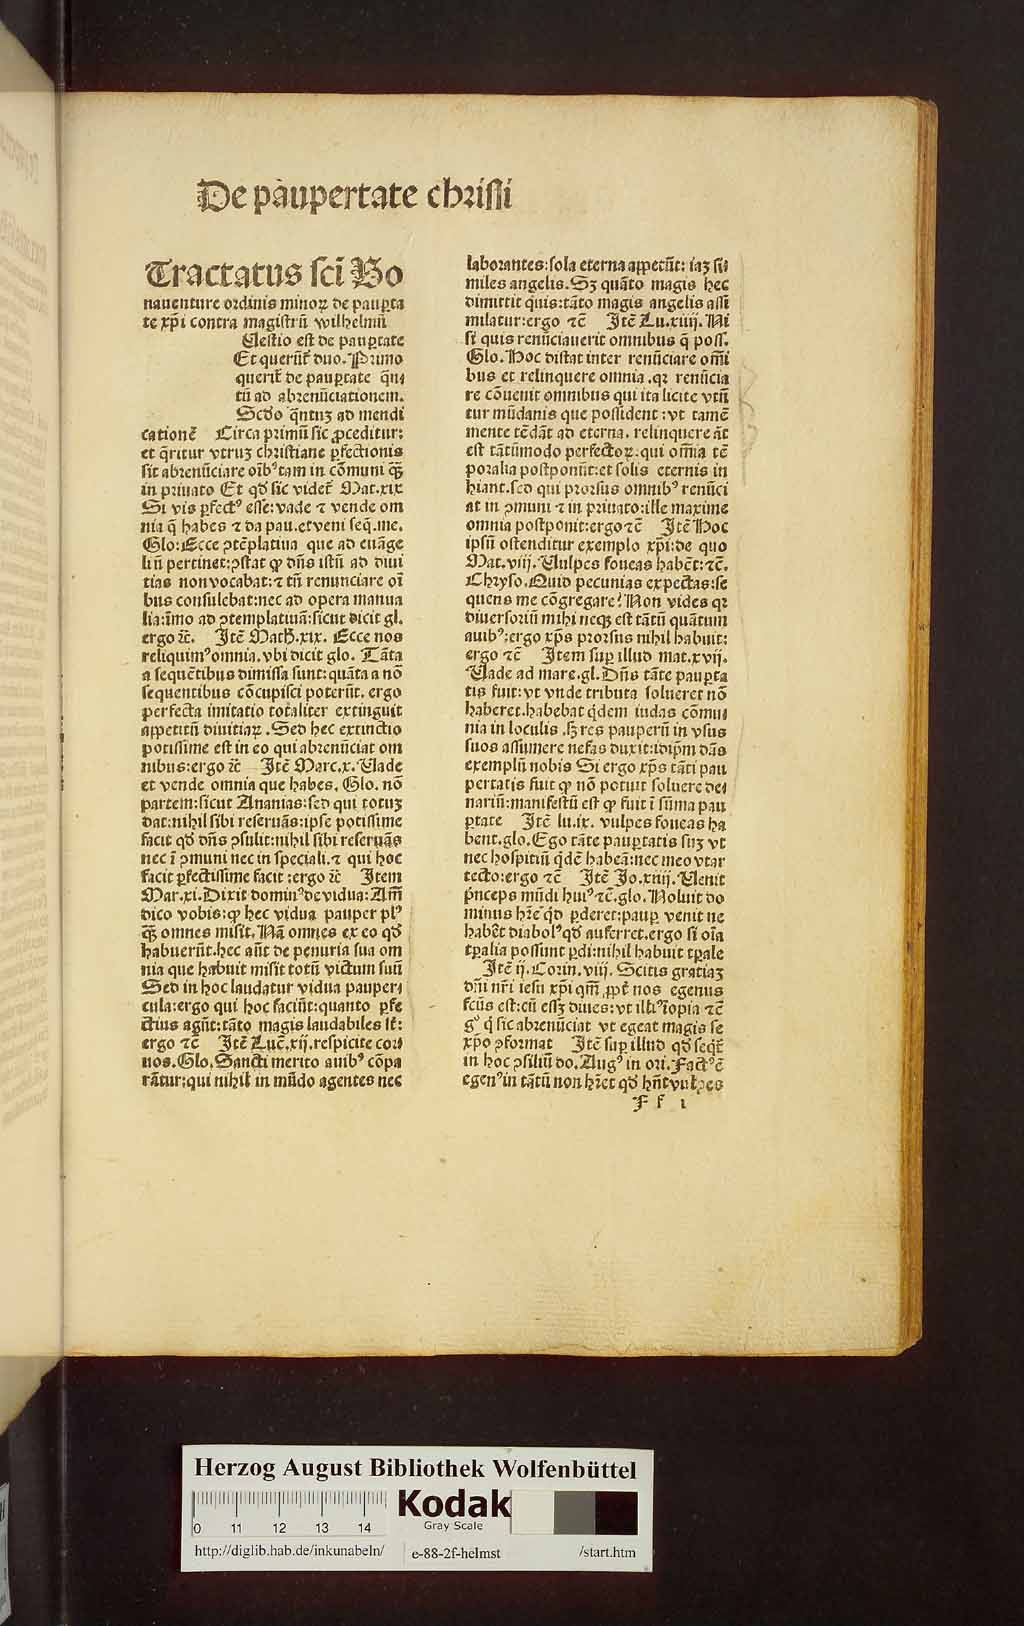 De paupertate christi
Tractatus sci Bo
nauenture ordinis minoꝝ de paupta
te xpi contra magistrū wilhelmū
Uestio est de paupertate
Et querūt̄ duo. Primo
querit̄ de paupertate q̄n
tū ad abrenūciationem.
Scd̄o q̄ntuꝫ ad mendi
cationē Circa primū sic ꝓceditur:
et q̄ritur vtruꝫ christiane ꝑfectionis
sit abrenūciare oīb⁹ tam in cōmuni qꝫ
in priuato Et qd̄ sic videt̄ Mat.xix
Si vis ꝑfect⁹ esse: vade ⁊ vende om
nia q̄ habes ⁊ da pau. et veni seq̄.me.
Glo: Ecce ꝯtēplatiua que ad euāge
liū pertinet: ꝯstat ꝙ dn̄s istū ad diui
tias non vocabat: ⁊ tn̄ renunciare oī
bus consulebat: nec ad opera manua
lia: īmo ad ꝯtemplatiuā: sicut dicit gl.
ergo ⁊c̄. Itē Math.xix. Ecce nos
reliquim⁹ omnia. vbi dicit glo. Tāta
a sequētibus dimissa sunt: quāta a nō
sequentibus cōcupisci poterūt. ergo
perfecta imitatio totaliter extinguit
appetitū diuitiaꝝ. Sed hec extinctio
potissime est in eo qui abrenūciat om
nibus: ergo ⁊c̄ Itē Marc.x. Uade
et vende omnia que habes. Glo. nō
partem: sicut Ananias: sed qui totuꝫ
dat: nihil sibi reseruās: ipse potissime
facit qd̄ dn̄s ꝯsulit: nihil sibi reseruās
nec ī ꝯmuni nec in speciali. ⁊ qui hoc
facit ꝑfectissime facit: ergo ⁊c̄ Item
Mar.xi. Dixit domin⁹ de vidua: Amē
dico vobis: ꝙ hec vidua pauper pl⁹
qꝫ omnes misit. Nā omnes ex eo qd̄
habuerūt. hec aūt de penuria sua om
nia que habuit misit totū victum suū
Sed in hoc laudatur vidua pauper
cula: ergo qui hoc faciūt: quanto ꝑfe
ctius agūt: tāto magis laudabiles st̄:
ergo ⁊c̄ Itē Luc.xij. respicite cor
uos. Glo. Sancti merito auib⁹ cōpa
rātur: qui nihil in mūdo agentes nec
laborantes: sola eterna appetūt: iaꝫ si
miles angelis. Sꝫ quāto magis hec
dimittit quis: tāto magis angelis assi
milatur: ergo ⁊c̄ Itē Lu.xiiij. Ni
si quis renūciauerit omnibus q̄ poss.
Glo. Hoc distat inter renūciare om̄i
bus et relinquere omnia. qꝛ renūcia
re cōuenit omnibus qui ita licite vtū
tur mūdanis que possident: vt tamē
mente tēdāt ad eterna. relinquere āt
est tātūmodo perfectoꝝ. qui om̄ia tē
poralia postponūt: et solis eternis in
hiant. sed qui prorsus omnib⁹ renūci
at in ꝯmuni ⁊ in priuato: ille maxime
omnia postponit: ergo ⁊c̄ Itē Hoc
ipsū ostenditur exemplo xp̄i: de quo
Mat.viij. Uulpes foueas habēt: ⁊c̄.
Chryso. Quid pecunias expectas: se
quens me cōgregare? Non vides qꝛ
diuersoriū mihi neqꝫ est tātū quātum
auib⁹: ergo xp̄s prorsus nihil habuit:
ergo ⁊c̄ Item sup illud mat.xvij.
Uade ad mare. gl. Dn̄s tāte pauperta
tis fuit: vt vnde tributa solueret nō
haberet. habebat q̄dem iudas cōmu
nia in loculis. sꝫ res pauperū in vsus
suos assumere nefas duxit: idip̄m dās
exemplū nobis Si ergo xp̄s tāti pau
pertatis fuit ꝙ nō potuit soluere de
nariū: manifestū est ꝙ fuit ī sūma pau
ꝑtate Itē lu.ix. vulpes foueas ha
bent. glo. Ego tāte paupertatis suꝫ vt
nec hospitiū q̄dē habeā: nec meo vtar
tecto: ergo ⁊c̄ Itē Jo.xiiij. Uenit
p̄nceps mūdi hui⁹ ⁊c̄. glo. Noluit do
minus hr̄e qd̄ ꝑderet: paup̄ venit ne
habēt diabol⁹ qd̄ auferret. ergo si oīa
tꝑalia possunt ꝑdi: nihil habuit tꝑale
Itē ij. Corin. viij. Scitis gratiaꝫ
dn̄i nr̄i iesu xp̄i qm̄ ꝓpt̄ nos egenus
fcūs est: cū essꝫ diues: vt ill⁹ īopia ⁊c̄
g° q̄ sic abrenūciat vt egeat magis se
xp̄o ꝯformat Itē sup illud qd̄ seq̄t̄
in hoc ꝯsiliū do. Aug⁹ in ori. Fact⁹ ē
egen⁹ in tātū non hr̄et qd̄ hn̄t vulpes
F f 1
Herzog August Bibliothek Wolfenbüttel
Kodak
Gray Scale
0 11 12 13 14
http://diglib.hab.de/inkunabeln/ e-88-2f-helmst /start.htm